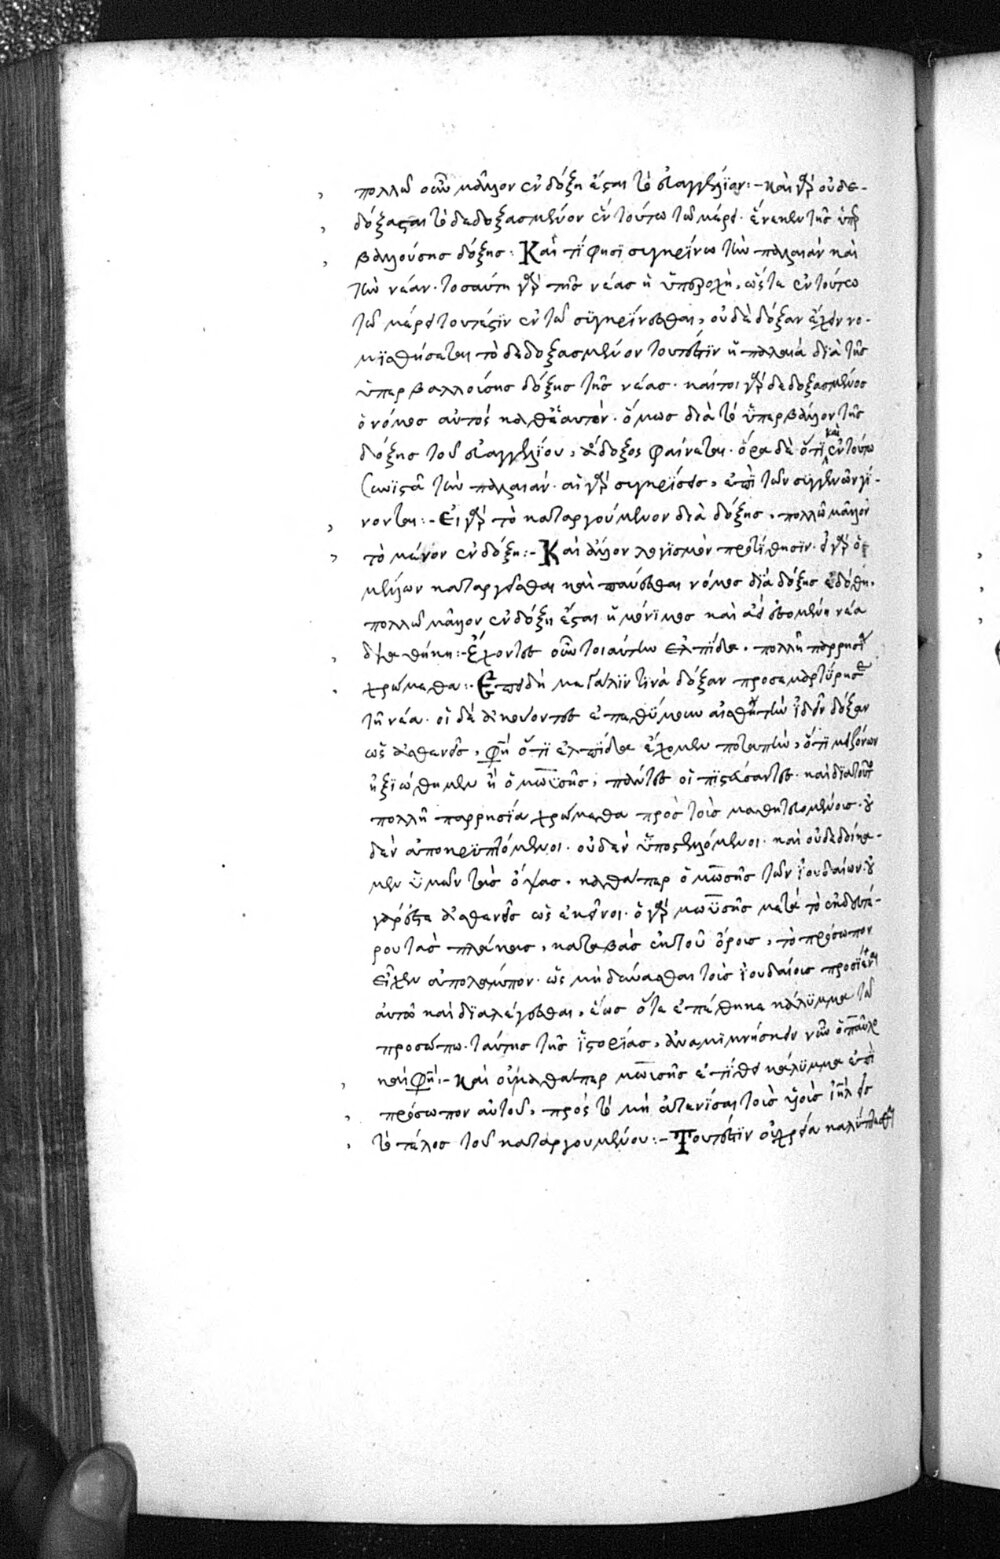 πολλῶ οὖν μᾶλλον ἐν δόξη ἔσται τὸ εὐαγγέλιον:- Καὶ γὰρ οὐ δε-
δόξασται τὸ δεδοξασμένον ἐν τούτω τῶ μέρει· ἕνεκεν τῆς ὑπερ
βαλλούσης δόξης· Καὶ τί φησι συγκρίνω τὴν παλαιὰν καὶ
τὴν νέαν· τοσαύτη γὰρ τῆς νέας ἡ ὑπεροχὴ, ὥστε ἐν τούτω
τῶ μέρει τουτέστιν ἐν τῶ συγκρίνεσθαι, οὐδὲ δόξαν ἔχειν νο-
μισθήσεται τὸ δεδοξασμένον τουτέστιν ἡ παλαιά διὰ τῆς
ὑπερβαλλούσης δόξης τῆς νέας· καίτοι γὰρ δεδοξασμένος
ὁ νόμος αὐτὸς καθ' ἑαυτὸν· ὅμως διὰ τὸ ὑπερβάλλον τῆς
δόξης τοῦ εὐαγγελίου, ἄδοξος φαίνεται· ὅρα δὲ ὅτι καὶ ἐν τούτω
συνιστᾶ τὴν παλαιάν· αἱ γὰρ συγκρίσεις, ἐπὶ τῶν συγγενῶν γί-
νονται:- Εἰ γὰρ τὸ καταργούμενον διὰ δόξης, πολλῶ μᾶλλον
τὸ μένον ἐν δόξη:- Καὶ ἄλλον λογισμὸν προτίθησιν· εἰ γὰρ ὁ
μέλλων καταργεῖσθαι καὶ παύεσθαι νόμος διὰ δόξης ἐδόθη,
πολλῶ μᾶλλον ἐν δόξη ἔσται ἡ μόνιμος καὶ ἀεὶ ἐσομένη νέα
διαθήκη:- Ἔχοντες οὖν τοιαύτην ἐλπίδα, πολλῆ παρρησία
χρώμεθα:- Ἐπειδὴ μεγάλην τινὰ δόξαν προσεμαρτύρησε
τῆ νέα· οἱ δὲ ἀκούοντες ἐπεθύμουν αἰσθητὴν ἰδεῖν δόξαν
ὡς ἀσθενεῖς, φησὶν ὅτι ἐλπίδα ἔχομεν τοιαύτην, ὅτι μειζόνων
ἠξιώθημεν ἢ ὁ μωϋσῆς, πάντες οἱ πιστεύσαντες· καὶ διὰ τοῦτο
πολλῆ παρρησία χρώμεθα πρὸς τοὺς μαθητευομένους· οὐ
δὲν ἀποκρυπτόμενοι· οὐδὲν ὑποστελλόμενοι· καὶ οὐ δεδοίκα-
μεν ὑμῶν τὰς ὄψεις, καθάπερ ὁ μωσῆς τῶν ἰουδαίων· οὐ
γάρ ἐστε ἀσθενεῖς ὡς ἐκεῖνοι· ὁ γὰρ μωϋσῆς μετὰ τὸ ἐκ δευτέ-
ρου τὰς πλάκας, καταβὰς ἐκ τοῦ ὄρους, τὸ πρόσωπον
εἶχεν ἀπολάμπον· ὡς μὴ δύνασθαι τοὺς ἰουδαίους προσιέναι
αὐτῶ καὶ διαλέγεσθαι, ἕως ὅτε ἐπέθηκε κάλυμμα τῶ
προσώπω· ταύτης τῆς ἱστορίας, ἀναμιμνήσκει νῦν ὁ παῦλος
καί φησι:- Καὶ οὐ καθάπερ μωυσῆς ἐτίθει κάλυμμα ἐπὶ
πρόσωπον αὐτοῦ, πρὸς τὸ μὴ ἀτενίσαι τοὺς υἱοὺς ἰηλ εἰς
τὸ τέλος τοῦ καταργουμένου:- Τουτέστιν οὐ χρεία καλύπτεσθαι